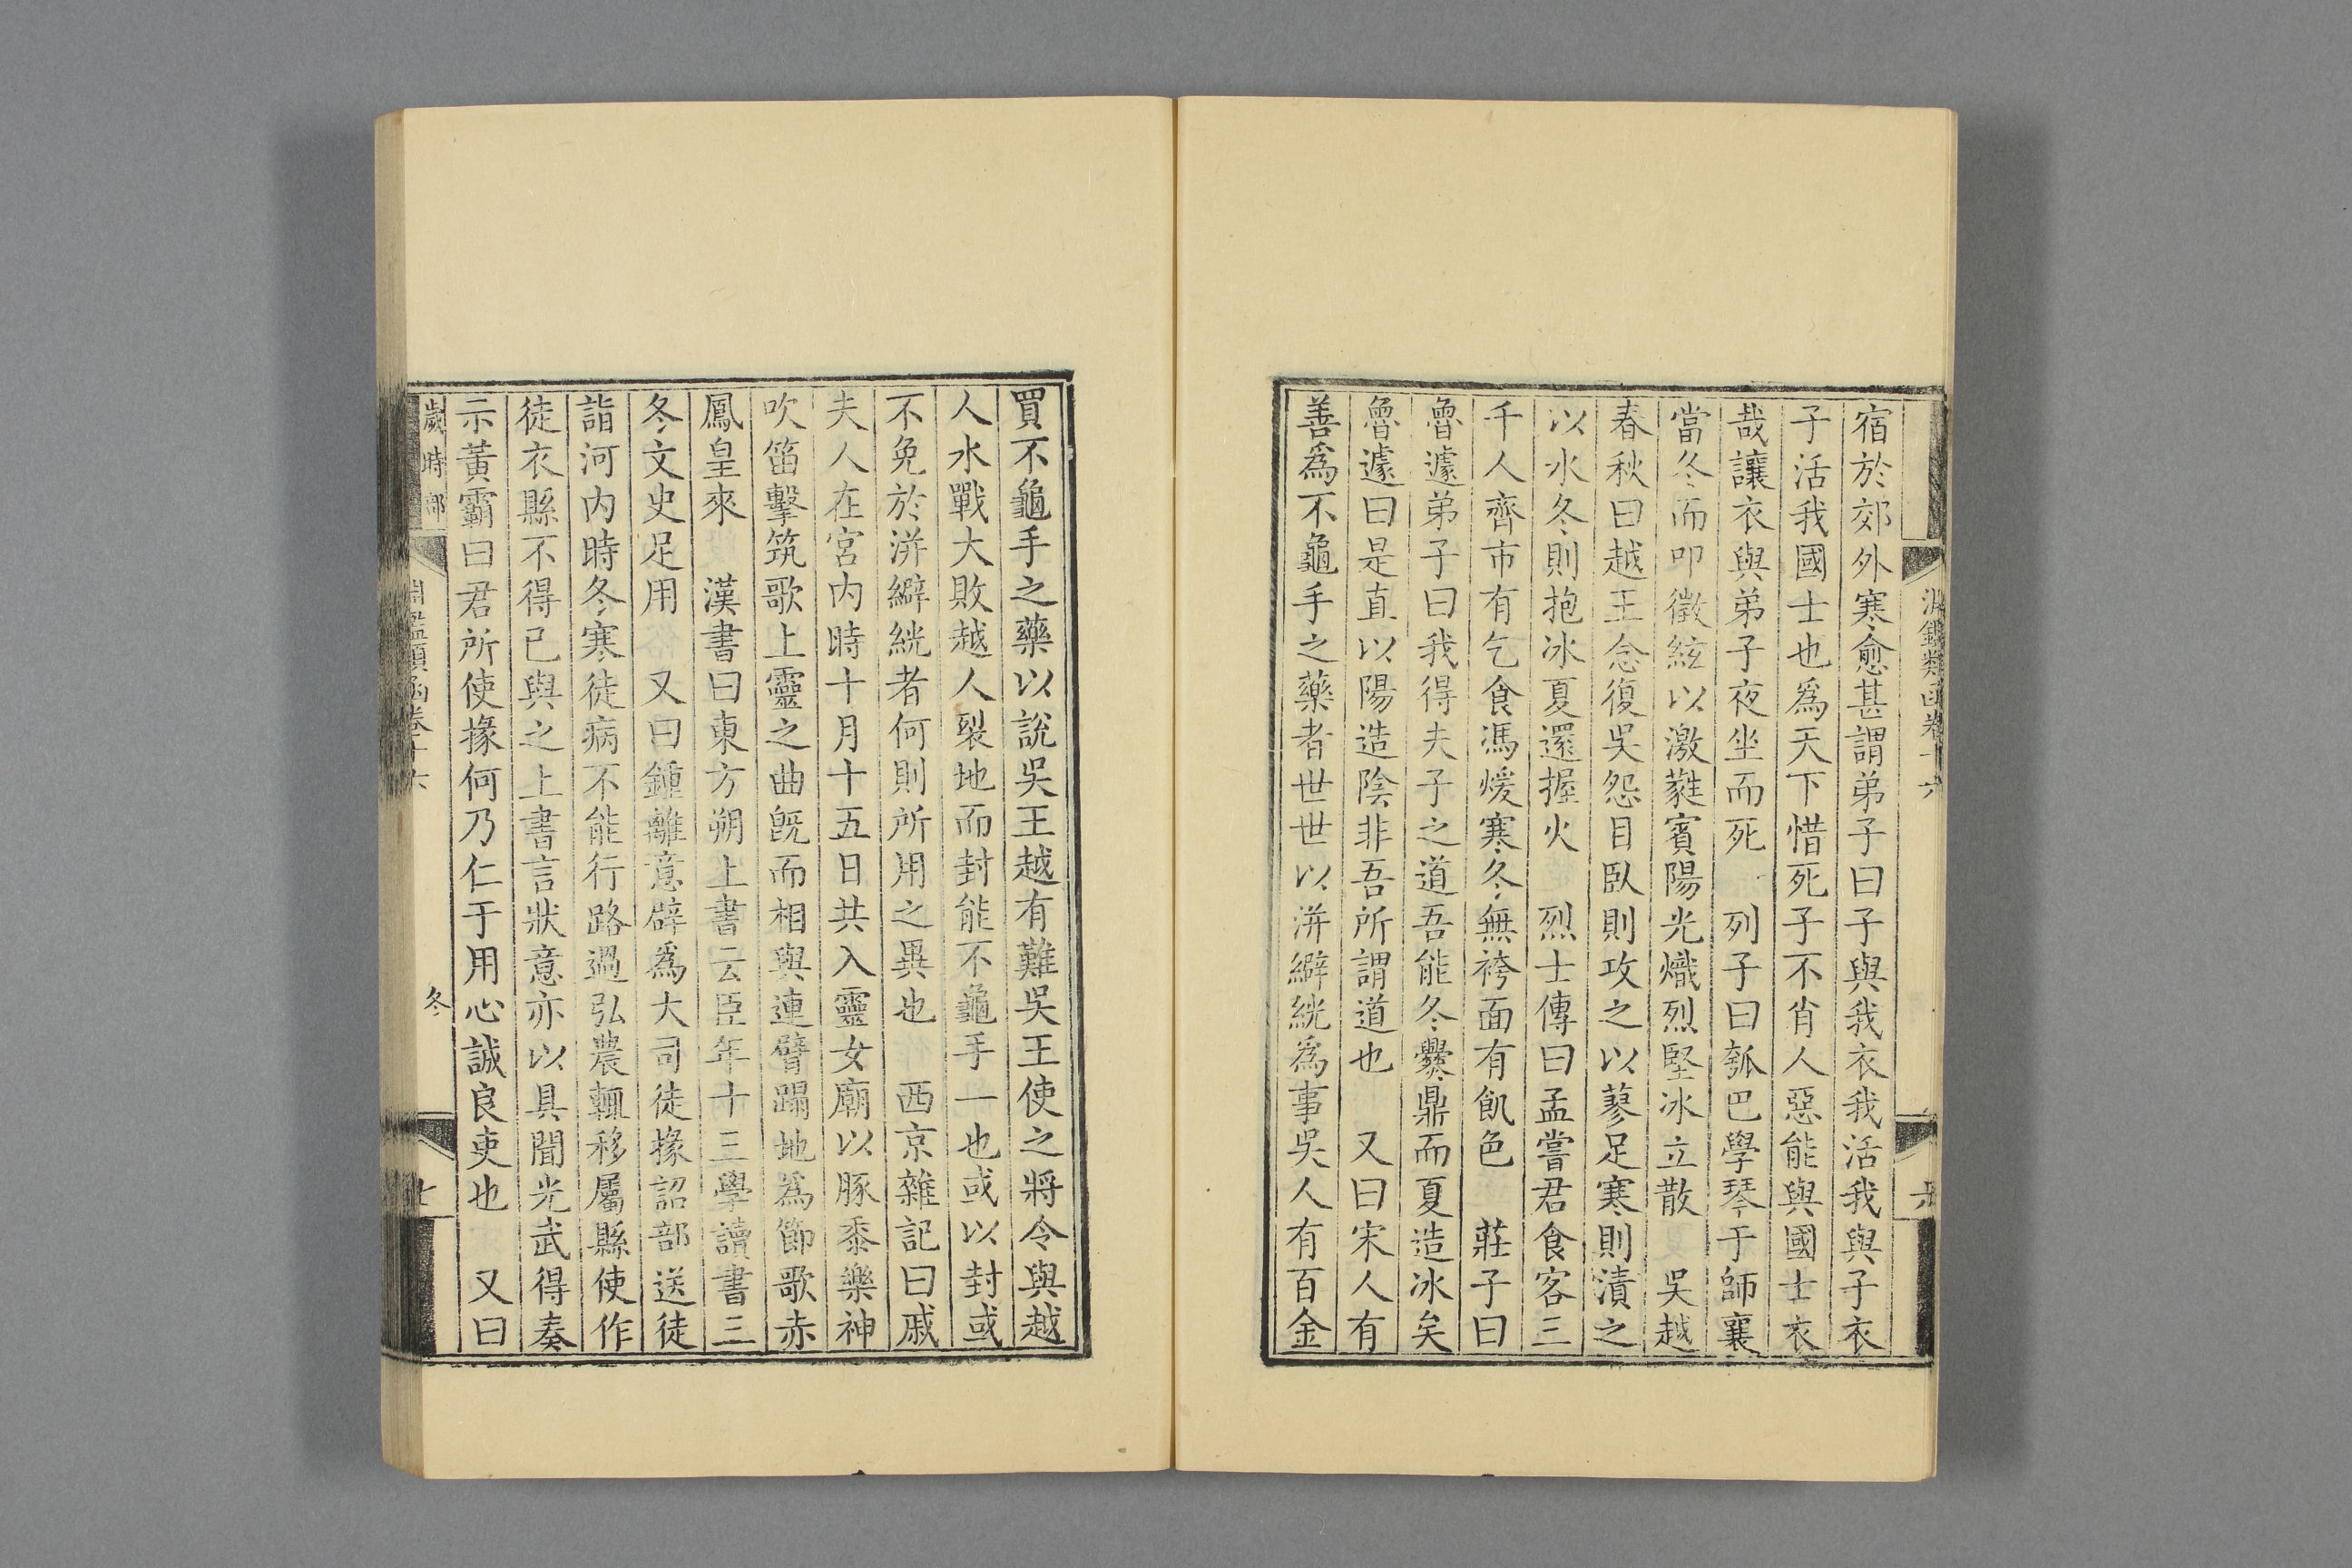 宿於郊外寒愈甚謂弟子曰子與我衣我活我與子衣
子活我國士也爲天下惜死子不肖人惡能與國士衣
哉讓衣與弟子夜坐而死　列子曰瓠巴學琴于師襄
當冬而叩徵絃以激蕤賓陽光熾烈堅冰立散　吳越
春秋曰越王念復吳怨目臥則攻之以蓼足寒則漬之
以水冬則抱冰夏還握火　烈士傳曰孟嘗君食客三
千人齊市有乞食馮煖寒冬無袴面有飢色　莊子曰
魯遽弟子曰我得夫子之道吾能冬爨鼎而夏造冰矣
魯遽曰是直以陽造陰非吾所謂道也　又曰宋人有
善爲不龜手之藥者世世以洴澼絖爲事吳人有百金
買不龜手之藥以說吳王越有難吳王使之將令與越
人水戰大敗越人裂地而封能不龜手一也或以封或
不免於洴澼絖者何則所用之異也　西京雜記曰戚
夫人在宮内時十月十五日共入靈女廟以豚黍樂神
吹笛擊筑歌上靈之曲旣而相與連臂蹋地爲節歌赤
鳳皇來　漢書曰東方朔上書云臣年十三學讀書三
冬文史足用　又曰鍾離意辟爲大司徒掾詔部送徒
詣河内時冬寒徒病不能行路過弘農輒移屬縣使作
徒衣縣不得已與之上書言狀意亦以具聞光武得奏
示黃霸曰君所使掾何乃仁于用心誠良吏也　又曰
歲時部
淵鑑類函卷十六
冬